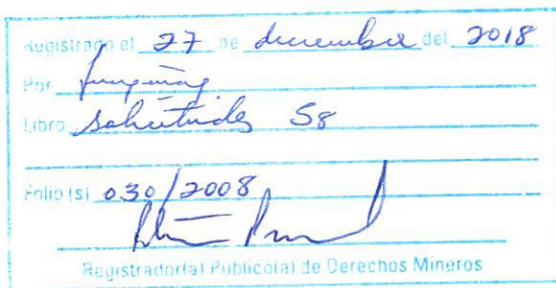 Registrado el 27 de diciembre del 2018
Por
Libro Solicitudes 58
Folio (s) 030/2008
Registrador(a) Publico(a) de Derechos Mineros